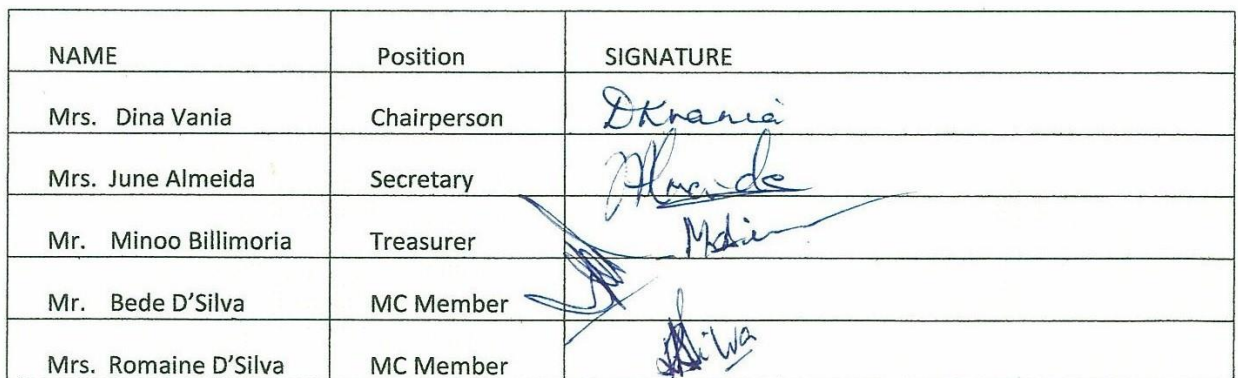 NAME Position SIGNATURE
Mrs. Dina Vania Chairperson DKVania
Mrs. June Almeida Secretary
Mr. Minoo Billimoria Treasurer
Mr. Bede D'Silva MC Member
Mrs. Romaine D'Silva MC Member